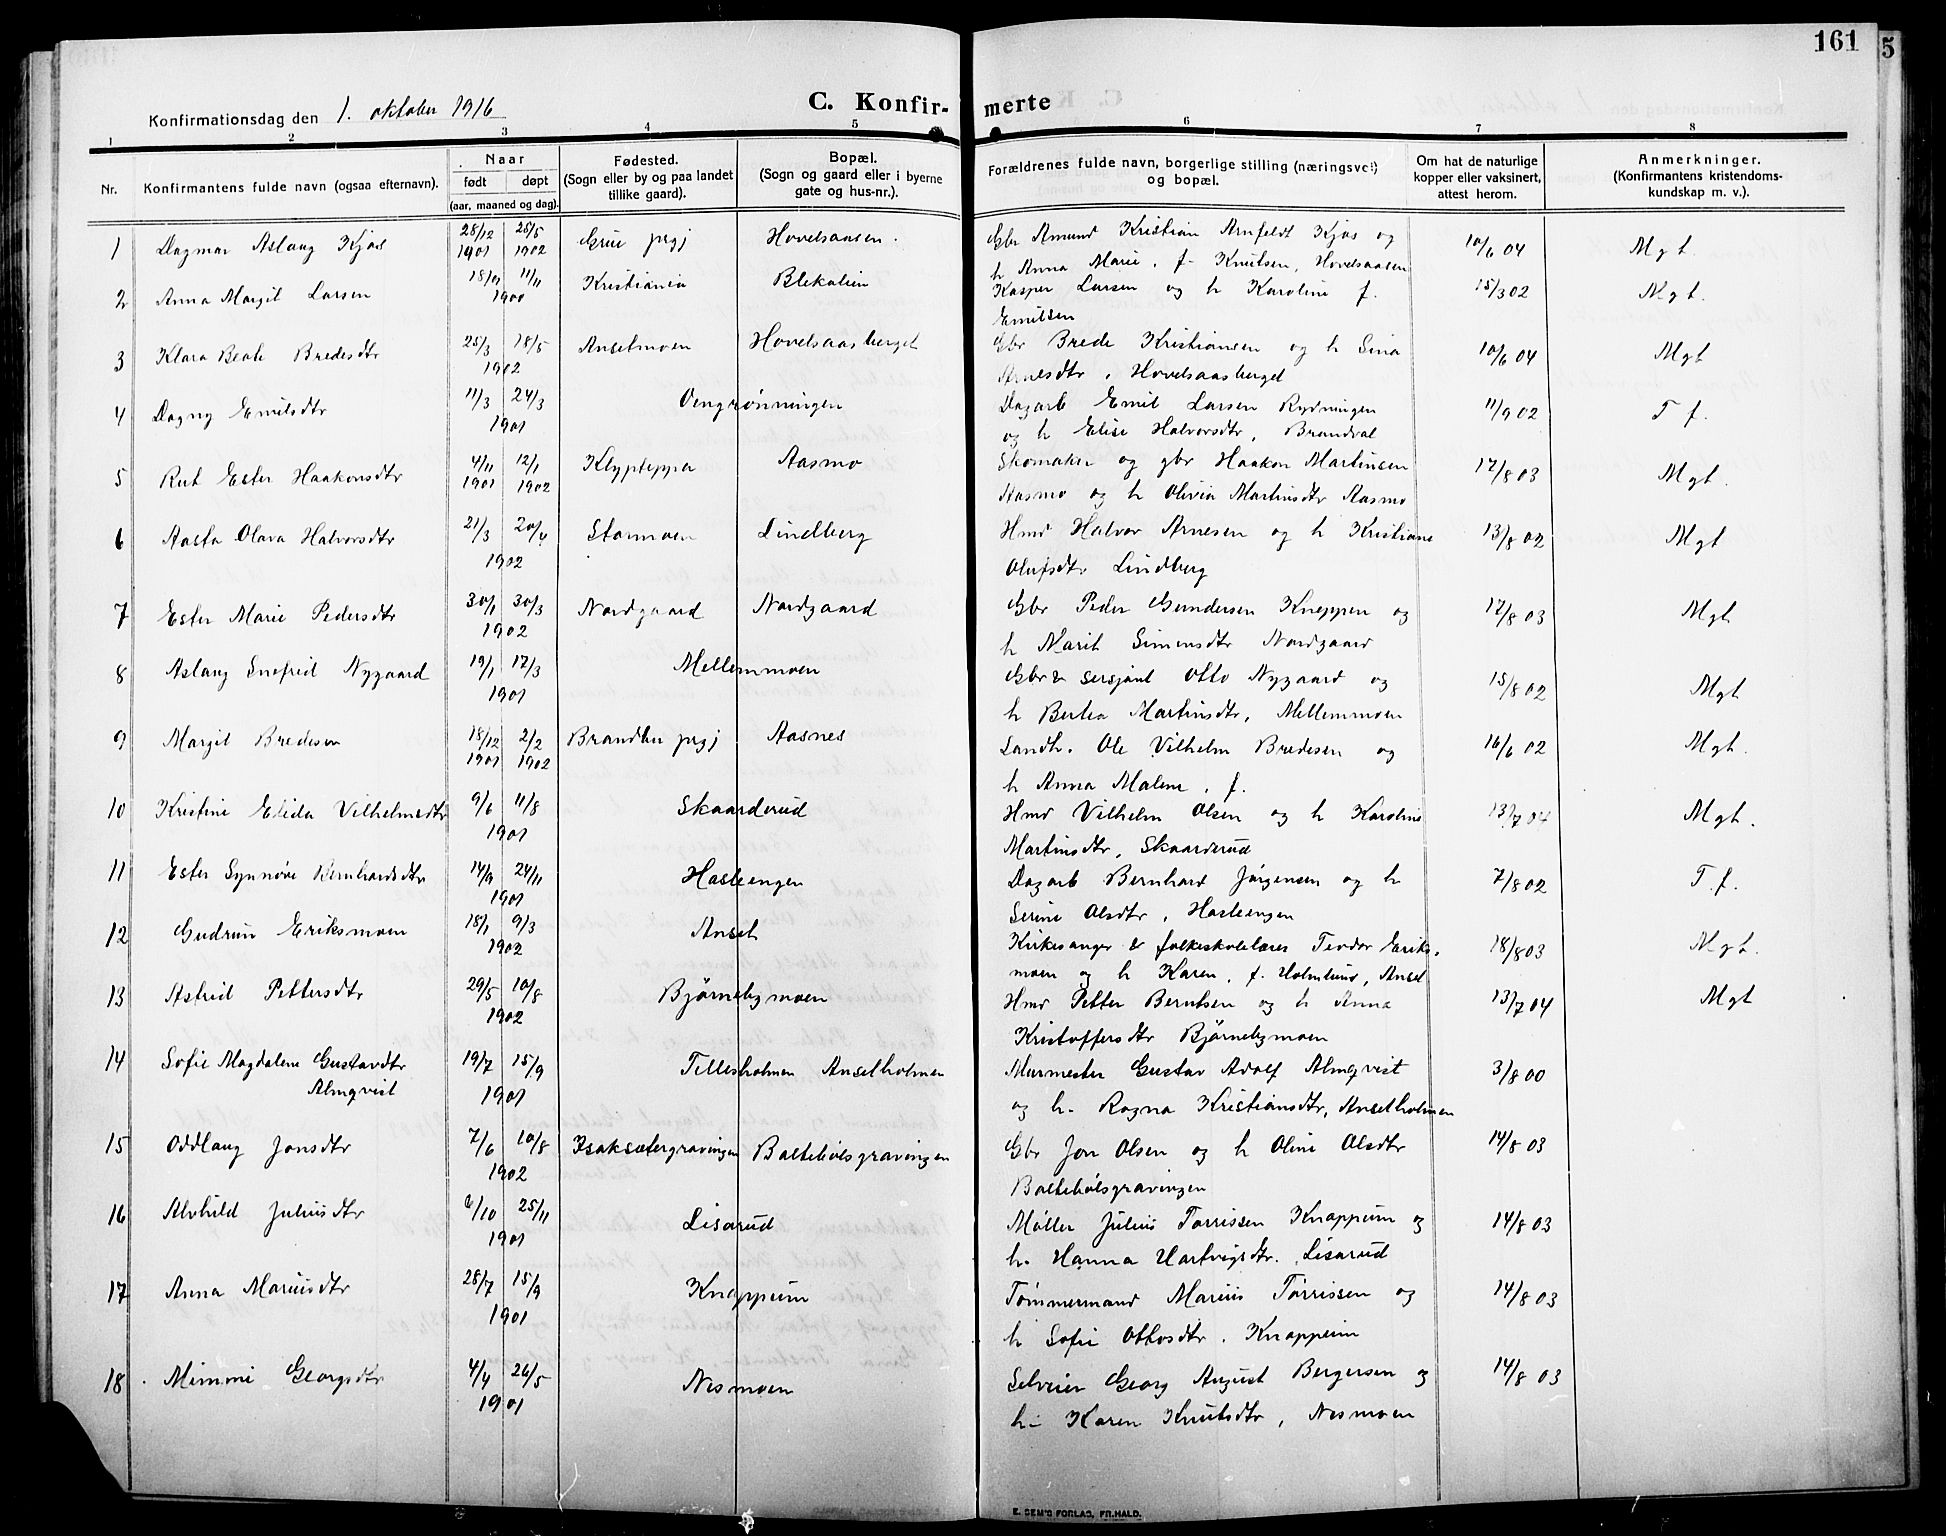 161
5
Konfirmationsdag den 1. oktober 1916
C. Konfir- merte
1 2 3 4 5 6 7 8
Nr. Konfirmantens fulde navn (ogsaa efternavn). Naar født døpt (aar, maaned og dag). Fødested. (Sogn eller by og paa landet tillike gaard). Bopæl. (Sogn og gaard eller i byerne gate og hus-nr.). Forældrenes fulde navn, borgerlige stilling (næringsvei) og bopæl. Om hat de naturlige kopper eller vaksinert, attest herom. Anmerkninger. (Konfirmantens kristendoms-kundskap m. v.).
1 Dagmar Aslaug Kjos 28/12 1901 26/5 1902 Grue prgj Hovelsaasen. Gbr Amund Kristian Arnfeldt Kjos og 10/6 04 Mgt
h Anna Marie, f. Knutsen, Hovelsaasen
2 Anna Margit Larsen 11/11 1900 Kristiania Blekalien Kasper Larsen og h Karoline f. 15/3 02 Mgt.
Emilsen
3 Klara Beate Bredesdtr 25/3 18/5 1902 Anselmoen Hovelsaasberget Gbr Brede Kristiansen og h Sina 10/6 04 Mgt
Arnesdtr, Hovelsaasberget
4 Dagny Emilsdtr 11/3 24/3 1901 Ovngrønningen Dagarb Emil Larsen Rydningen 11/9 02 T f.
og h Elise Halvorsdtr, Brandval
5 Rut Ester Haakonsdtr 4/11 1901 12/1 1902 Klypteppa Aasmo Skomaker og gbr Haakon Martinsen 17/8 03 Mgt.
Aasmo og h Olivia Martinsdtr Aasmo
6 Aasta Olava Halvorsdtr 21/3 20/4 1902 Stormoen Lindberg Hmd Halvor Arnesen og h Kristiane 13/8 02 Mgt
Olufsdtr Lindberg
7 Ester Marie Pedersdtr 30/1 30/3 1902 Nordgaard Nordgaard Gbr Peder Gundersen Kneppen og 17/8 03 Mgt
h Marit Simensdtr Nordgaard
8 Aslaug Snefrid Nygaard 19/1 17/3 1901 Mellemmoen Gbr & sersjant Otto Nygaard og 15/8 02 Mgt
h Bertea Martinsdtr, Mellemmoen
9 Margit Bredesen 18/12 1901 2/2 1902 Brandbu prgj Aasnes Landh. Ole Vilhelm Bredesen og 16/6 02 Mgt.
h Anna Malene, f.
10 Kristine Elida Vilhelmsdtr 9/6 11/8 1901 Skaarderud Hmd Vilhelm Olsen og h Karoline 13/7 04 Mgt.
Martinsdtr, Skaarderud
11 Ester Synnøve Bernhardsdtr 14/9 24/11 1901 Hasleengen Dagarb Bernhard Jørgensen og h 7/8 02 T. f.
Serine Olsdtr, Hasleengen
12 Gudrun Eriksmoen 18/1 9/3 1902 Ansel Kirkesanger & folkeskolelærer Teodor Eriks- 18/8 03 Mgt.
moen og h Karen, f. Holmlund, Ansel
13 Astrid Pettersdtr 29/5 10/8 1902 Bjørnebymoen Hmd Petter Berntsen og h Anna 13/7 04 Mgt
Kristoffersdtr Bjørnebymoen
14 Sofie Magdalene Gustavdtr 19/7 15/9 1901 Tillesholmen Anselholmen Murmester Gustav Adolf Almqvist 3/8 00
Almqvist og h. Ragna Kristiansdtr, Anselholmen
15 Oddlaug Jonsdtr 7/6 10/8 1902 Isaksætergravingen Baltebølsgravingen Gbr Jon Olsen og h Oline Olsdtr 14/8 03
Baltebølsgravingen
16 Alvhild Juliusdtr 6/10 25/11 1901 Lisarud Møller Julius Torrissen Knappum og 14/8 03
h. Hanna Hartvigsdtr. Lisarud
17 Anna Mariusdtr 28/7 15/9 1901 Knappum Tømmermand Marius Torrissen og 14/8 03
h Sofie Ottosdtr. Knappum
18 Mimmi Georgsdtr 4/4 26/5 1901 Nesmoen Selveier Georg August Bergersen og 14/8 03
h. Karen Knutsdtr, Nesmoen
E. SEM'S FORLAG, FR.HALD.